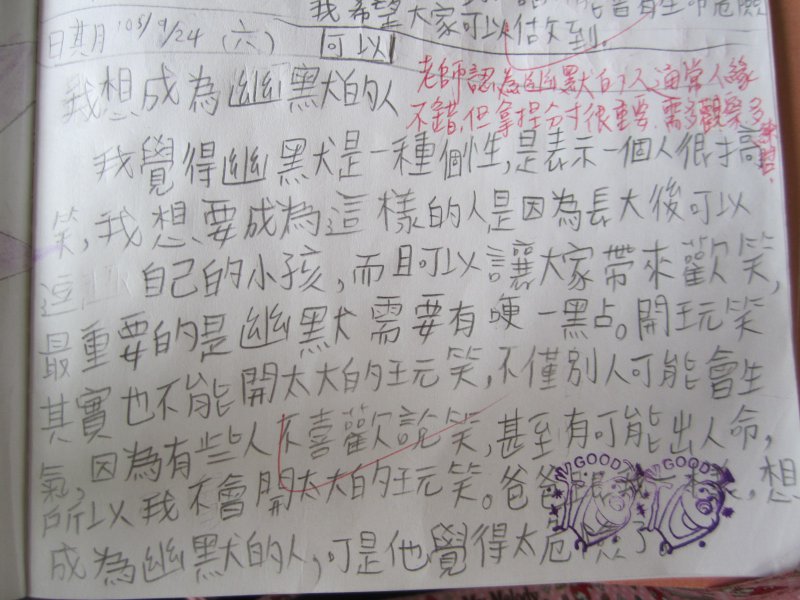 我希望大家可以做到。
日期 105/9/24 (六) 可以
我想成為幽默的人
老師認為幽默的人通常人緣
不錯,但拿捏分寸很重要,需多觀察多
我覺得幽默是一種個性,是表示一個人很搞
笑,我想要成為這樣的人是因為長大後可以
逗 自己的小孩,而且可以讓大家帶來歡笑,
最重要的是幽默需要有哽一點点。開玩笑
其實也不能開太大的玩笑,不僅別人可能會生
氣,因為有些人不喜歡說笑,甚至有可能出人命,
所以我不會開太大的玩笑。爸爸跟我一樣,想
成為幽默的人,可是他覺得太危險了
GOOD GOOD